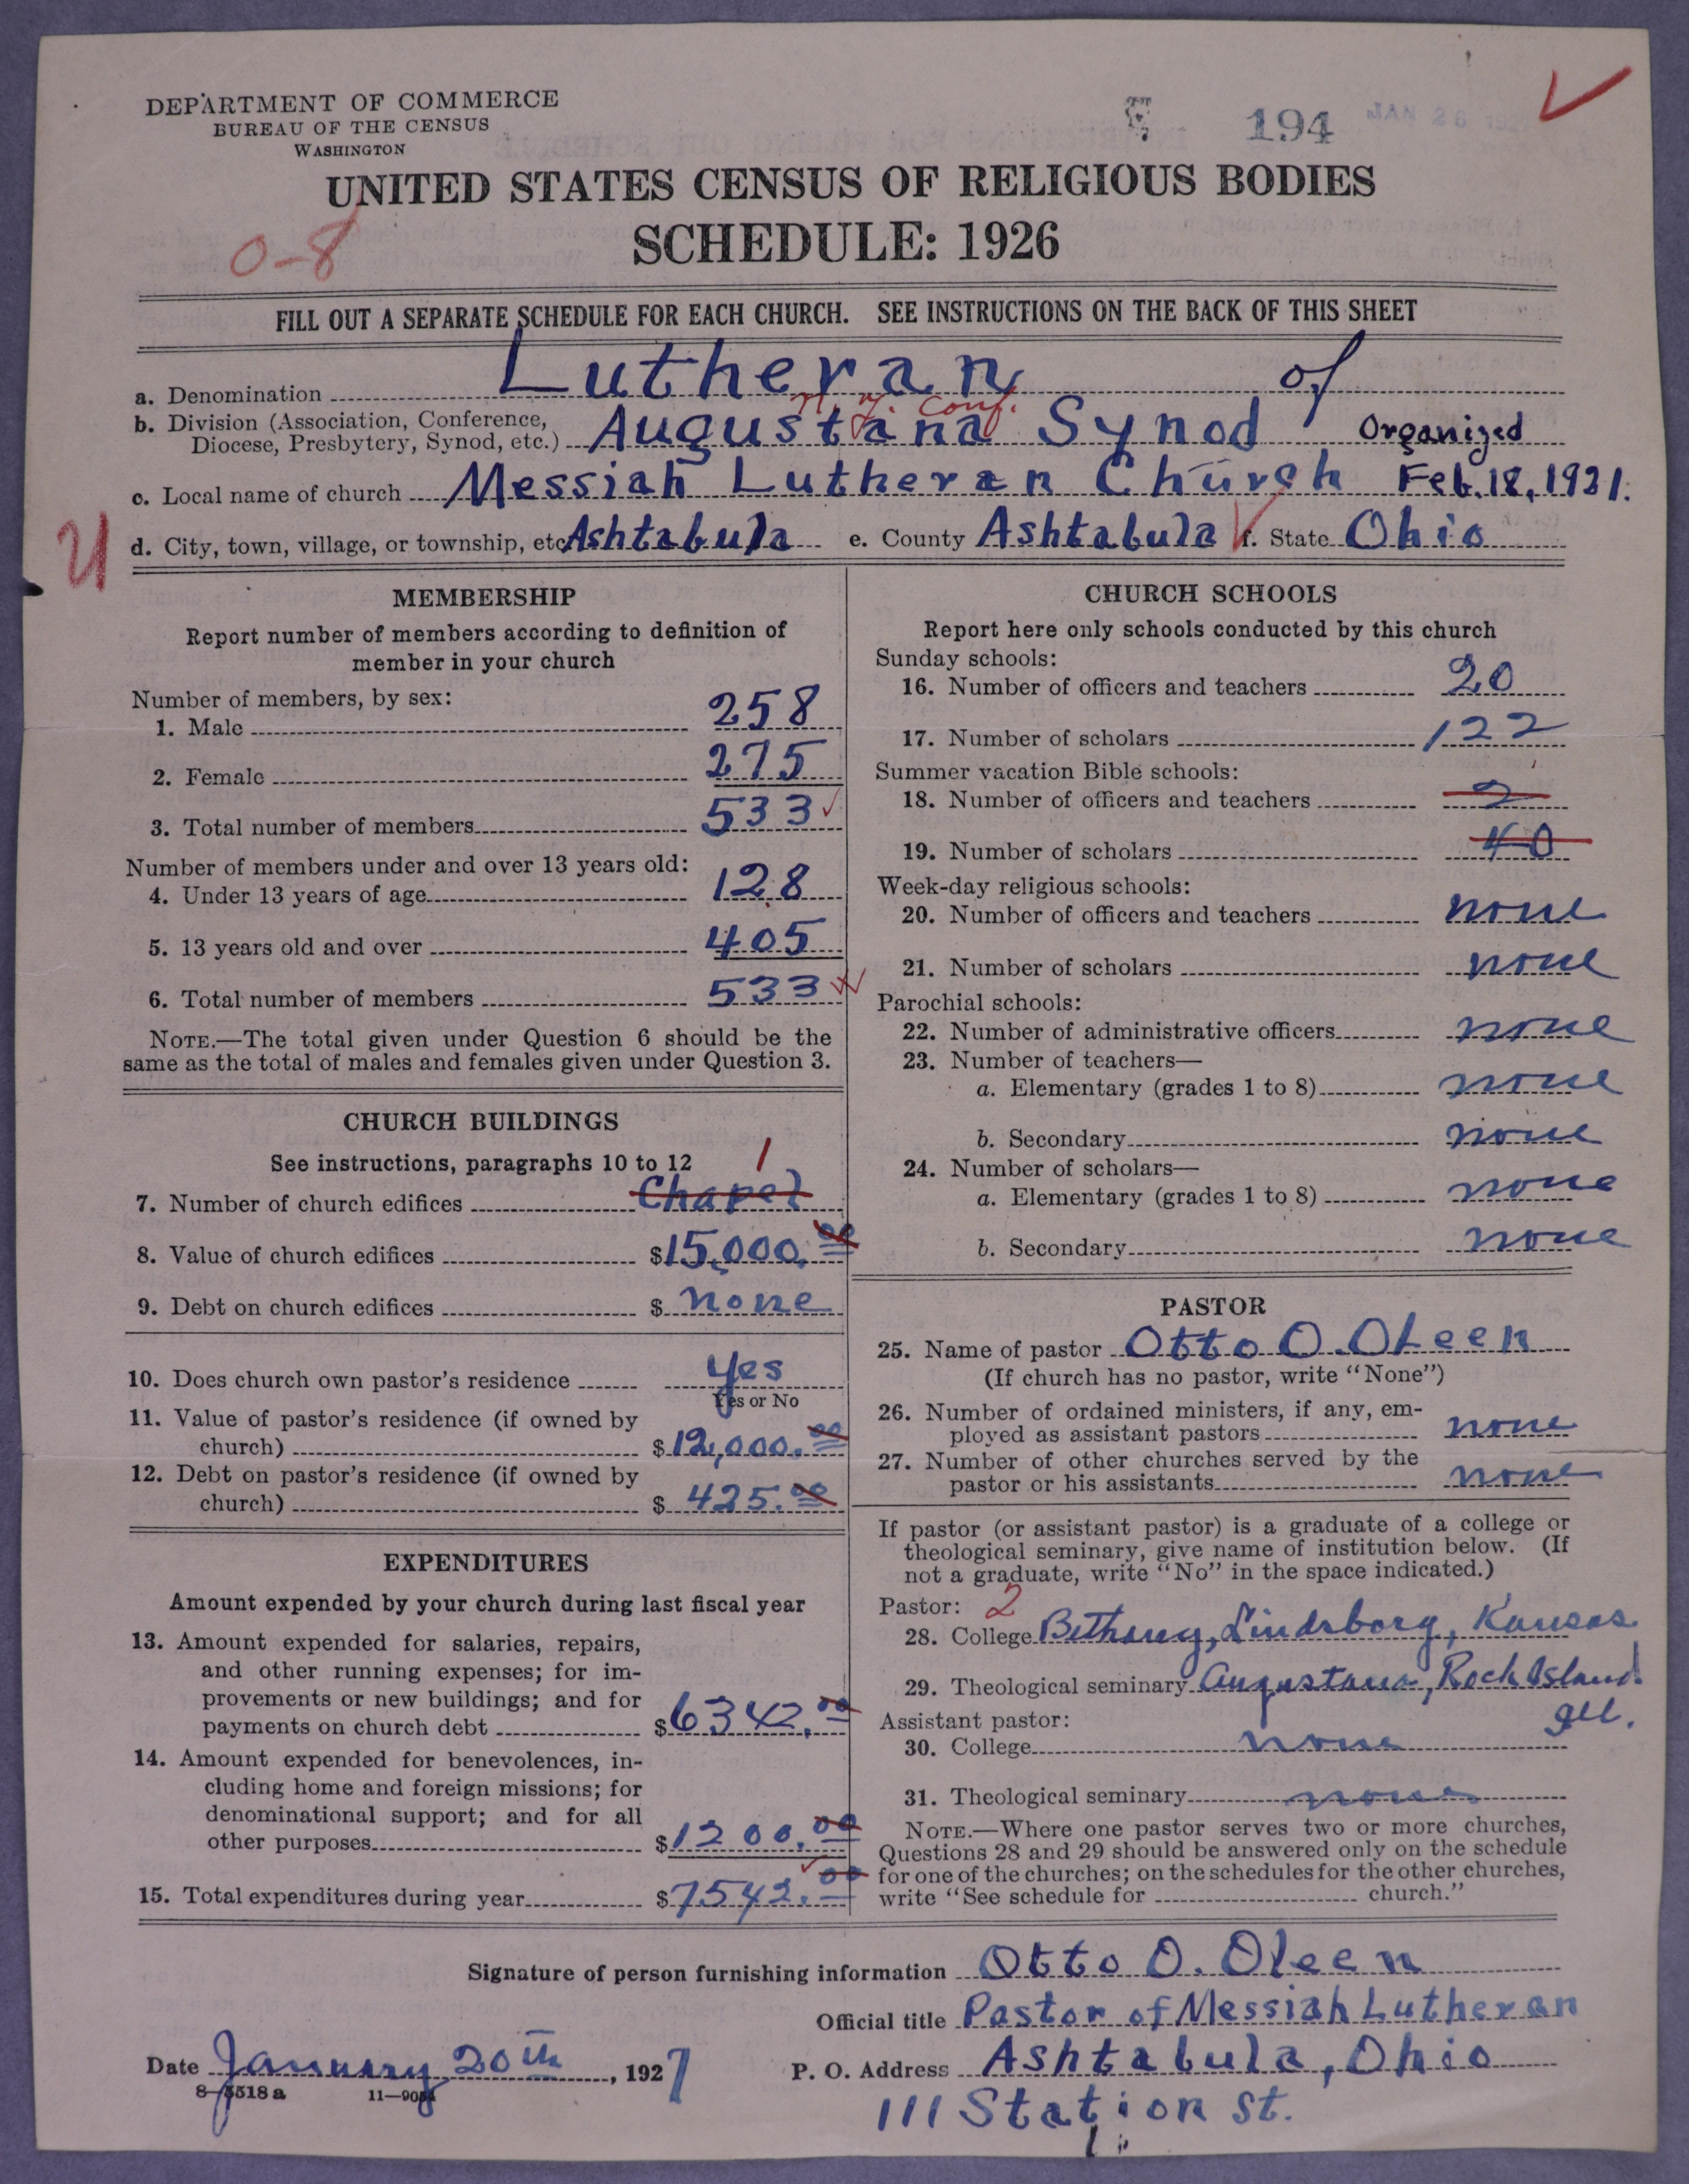 DEPARTMENT OF COMMERCE
BUREAU OF THE CENSUS
WASHINGTON
194
JAN 26
UNITED STATES CENSUS OF RELIGIOUS BODIES
SCHEDULE: 1926
0-8
FILL OUT A SEPARATE SCHEDULE FOR EACH CHURCH. SEE INSTRUCTIONS ON THE BACK OF THIS SHEET
a. Denomination Lutheran of
n. y. Conf.
b. Division (Association, Conference, Diocese, Presbytery, Synod, etc.) Augustana Synod Organized
c. Local name of church Messiah Lutheran Church Feb. 18, 1921.
d. City, town, village, or township, etc. Ashtabula e. County Ashtabula f. State Ohio
MEMBERSHIP
Report number of members according to definition of
member in your church
Number of members, by sex:
1. Male 258
2. Female 275
3. Total number of members 533
Number of members under and over 13 years old:
4. Under 13 years of age 128
5. 13 years old and over 405
6. Total number of members 533
NOTE.—The total given under Question 6 should be the
same as the total of males and females given under Question 3.
CHURCH BUILDINGS
See instructions, paragraphs 10 to 12 1
7. Number of church edifices Chapel
8. Value of church edifices $15,000.00
9. Debt on church edifices $ none
10. Does church own pastor's residence Yes
Yes or No
11. Value of pastor's residence (if owned by
church) $12,000.00
12. Debt on pastor's residence (if owned by
church) $ 425.00
EXPENDITURES
Amount expended by your church during last fiscal year
13. Amount expended for salaries, repairs,
and other running expenses; for im-
provements or new buildings; and for
payments on church debt $6342.00
14. Amount expended for benevolences, in-
cluding home and foreign missions; for
denominational support; and for all
other purposes $1200.00
15. Total expenditures during year $7542.00
CHURCH SCHOOLS
Report here only schools conducted by this church
Sunday schools:
16. Number of officers and teachers 20
17. Number of scholars 122
Summer vacation Bible schools:
18. Number of officers and teachers 2
19. Number of scholars 40
Week-day religious schools:
20. Number of officers and teachers none
21. Number of scholars none
Parochial schools:
22. Number of administrative officers none
23. Number of teachers—
a. Elementary (grades 1 to 8) none
b. Secondary none
24. Number of scholars—
a. Elementary (grades 1 to 8) none
b. Secondary none
PASTOR
25. Name of pastor Otto O. Oleen
(If church has no pastor, write "None")
26. Number of ordained ministers, if any, em-
ployed as assistant pastors none
27. Number of other churches served by the
pastor or his assistants none
If pastor (or assistant pastor) is a graduate of a college or
theological seminary, give name of institution below. (If
not a graduate, write "No" in the space indicated.)
Pastor: 2
28. College Bethany, Lindsborg, Kansas
29. Theological seminary Augustana, Rock Island
Ill.
Assistant pastor:
30. College none
31. Theological seminary none
NOTE.—Where one pastor serves two or more churches,
Questions 28 and 29 should be answered only on the schedule
for one of the churches; on the schedules for the other churches,
write "See schedule for church."
Signature of person furnishing information Otto O. Oleen
Official title Pastor of Messiah Lutheran
Date January 20th, 1927 P. O. Address Ashtabula, Ohio
8-5518a 11-
111 Station St.